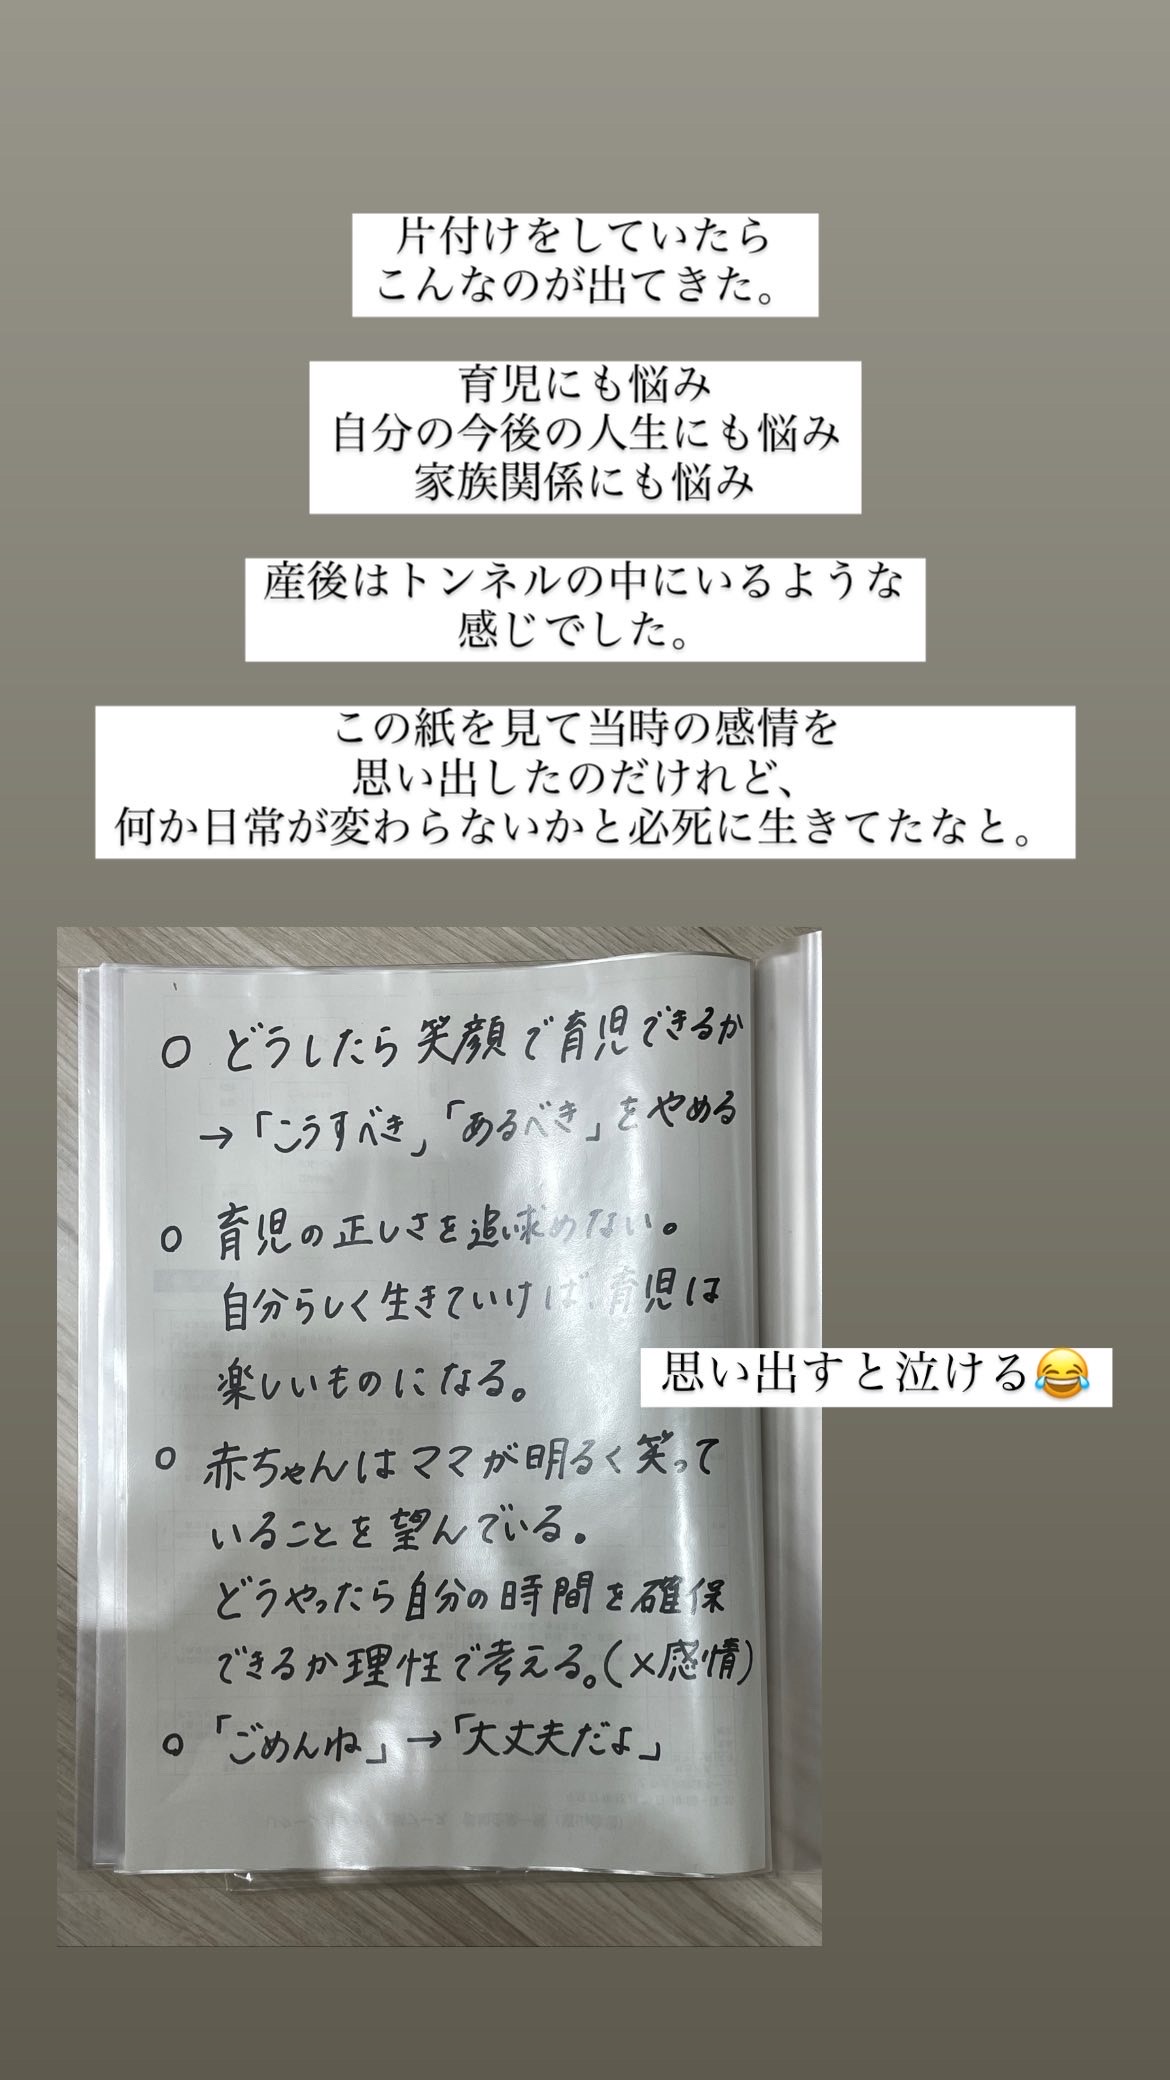 片付けをしていたら
こんなのが出てきた。
育児にも悩み
自分の今後の人生にも悩み
家族関係にも悩み
産後はトンネルの中にいるような
感じでした。
この紙を見て当時の感情を
思い出したのだけれど、
何か日常が変わらないかと必死に生きてたなと。
○ どうしたら笑顔で育児できるか
→「こうすべき」「あるべき」をやめる
○ 育児の正しさを追い求めない。
自分らしく生きていけば、育児は
楽しいものになる。
思い出すと泣ける😂
○ 赤ちゃんはママが明るく笑って
いることを望んでいる。
どうやったら自分の時間を確保
できるか理性で考える。(×感情)
○ 「ごめんね」→「大丈夫だよ」